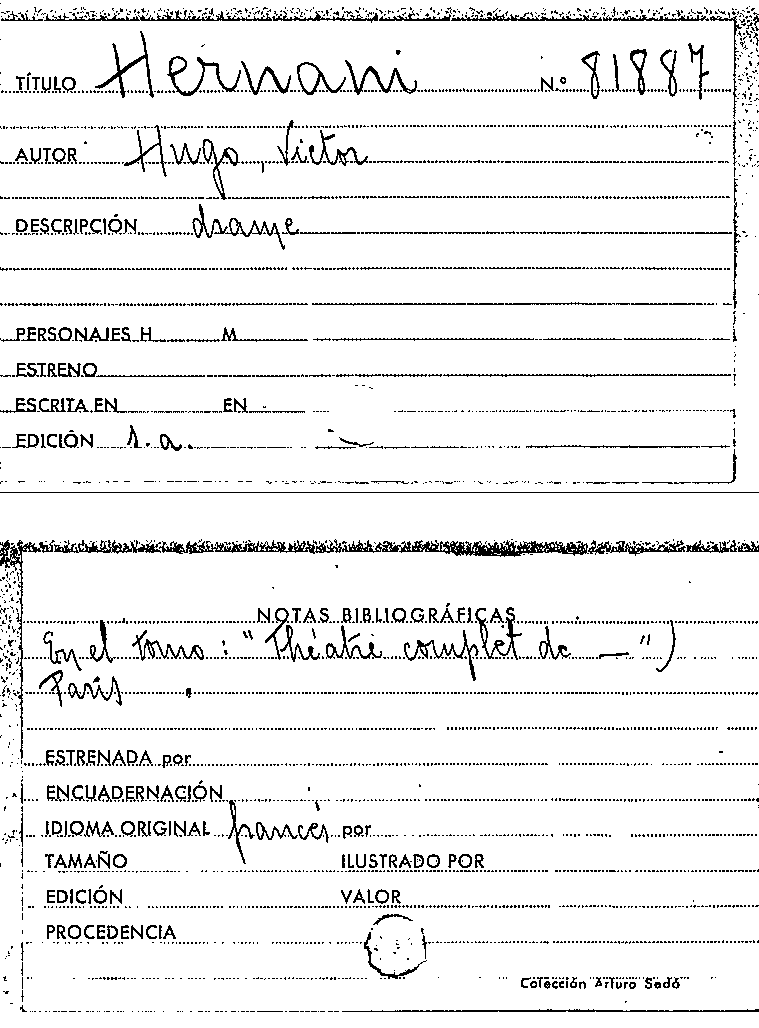 TÍTULO Hernani N.º 81887
AUTOR Hugo, Victor
DESCRIPCIÓN drame
PERSONAJES H M
ESTRENO
ESCRITA EN EN
EDICIÓN s.a.
NOTAS BIBLIOGRÁFICAS
En el tomo: "Théatre complet de —")
Paris
ESTRENADA por
ENCUADERNACIÓN
IDIOMA ORIGINAL francés por
TAMAÑO ILUSTRADO POR
EDICIÓN VALOR
PROCEDENCIA
Colección Arturo Sedó